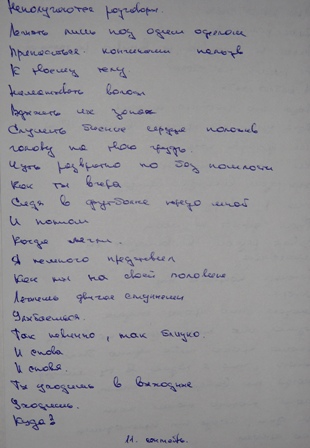 Неполучаются разговоры.
Лежать лишь под одним одеялом
Прикасаться кончиками пальцев
К твоему телу.
Наматывать волосы
Вдыхать их запах
Слушать биение сердца положив
голову на твою грудь.
Чуть развратно но без пошлости
Как ты вчера
Сидя в футболке предо мной
И потом
Когда легли.
Я немного представил
Как ты на своей половине
Лежишь двигое
Улыбаешься.
Так невинно, так близко.
И снова
И снова.
Ты уходишь в выходные
Уходишь.
Куда?
11. октябрь.